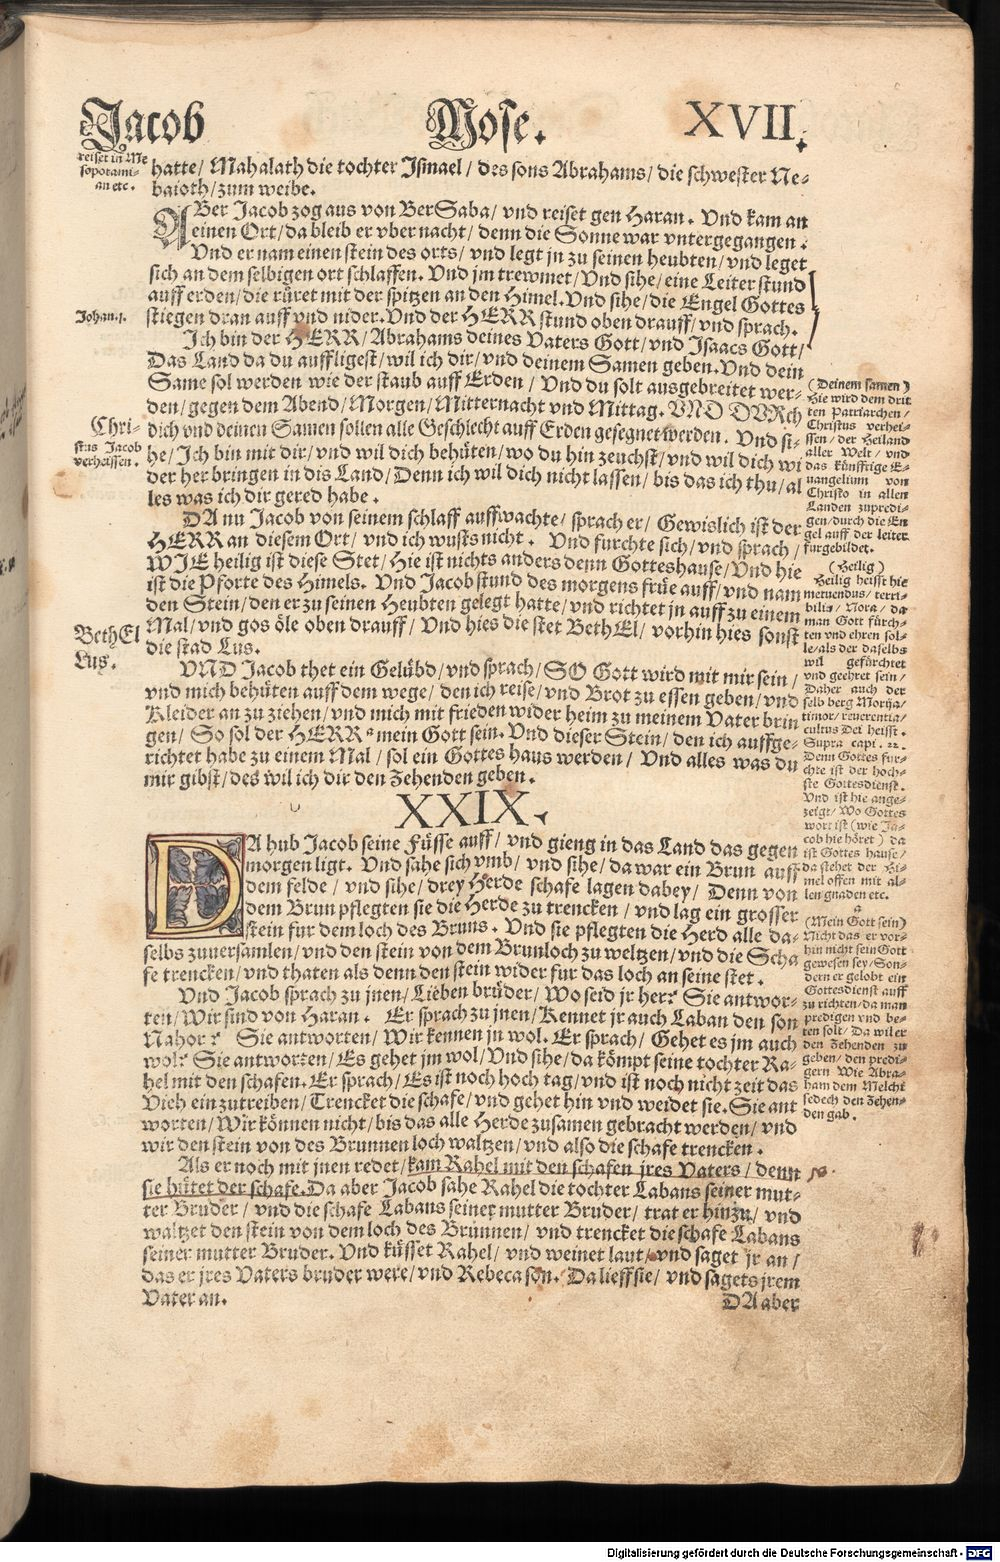 Jacob Mose. XVII.
reiset in Me
sopotami-
an etc.
hatte/ Mahalath die tochter Ismael/ des sons Abrahams/ die schwester Ne-
baioth/ zum weibe.
ABer Jacob zog aus von BerSaba/ vnd reiset gen Haran. Vnd kam an
einen Ort/ da bleib er vber nacht/ denn die Sonne war vntergegangen.
Vnd er nam einen stein des orts/ vnd legt jn zu seinen heubten/ vnd leget
sich an dem selbigen ort schlaffen. Vnd jm trewmet/ Vnd sihe/ eine Leiter stund
auff erden/ die rüret mit der spitzen an den Himel. Vnd sihe/ die Engel Gottes
Johan.1.
stiegen dran auff vnd nider. Vnd der HERR stund oben drauff/ vnd sprach.
Ich bin der HERR/ Abrahams deines Vaters Gott/ vnd Isaacs Gott/
Das Land da du auffligest/ wil ich dir/ vnd deinem Samen geben. Vnd dein
Same sol werden wie der staub auff Erden/ Vnd du solt ausgebreitet wer-
den/ gegen dem Abend/ Morgen/ Mitternacht vnd Mittag. VND DVRch
Chri-
stus Jacob
verheissen.
dich vnd deinen Samen sollen alle Geschlecht auff Erden gesegnet werden. Vnd si-
he/ Ich bin mit dir/ vnd wil dich behüten/ wo du hin zeuchst/ vnd wil dich wi
der her bringen in dis Land/ Denn ich wil dich nicht lassen/ bis das ich thu/ al
les was ich dir gered habe.
DA nu Jacob von seinem schlaff auffwachte/ sprach er/ Gewislich ist der
HERR an diesem Ort/ vnd ich wusts nicht. Vnd furchte sich/ vnd sprach/
WIE heilig ist diese Stet/ Hie ist nichts anders denn Gotteshause/ Vnd hie
ist die Pforte des Himels. Vnd Jacob stund des morgens früe auff/ vnd nam
den Stein/ den er zu seinen Heubten gelegt hatte/ vnd richtet jn auff zu einem
BethEl
Lus.
Mal/ vnd gos öle oben drauff/ Vnd hies die stet BethEl/ vorhin hies sonst
die stad Lus.
VND Jacob thet ein Gelübd/ vnd sprach/ SO Gott wird mit mir sein/
vnd mich behüten auff dem wege/ den ich reise/ vnd Brot zu essen geben/ vnd
Kleider an zu ziehen/ vnd mich mit frieden wider heim zu meinem Vater brin
gen/ So sol der HERR a mein Gott sein. Vnd dieser Stein/ den ich auffge-
richtet habe zu einem Mal/ sol ein Gottes haus werden/ Vnd alles was du
mir gibst/ des wil ich dir den Zehenden geben.
(Deinem samen)
Hie wird dem drit
ten Patriarchen/
Christus verhei-
ssen/ der Heiland
aller Welt/ vnd
das künfftige E-
uangelium von
Christo in allen
Landen zupredi-
gen/ durch die En
gel auff der leiter
furgebildet.
(Heilig)
Heilig heisst hie
metuendus/ terri-
bilis/ Nora/ da
man Gott fürch-
ten vnd ehren sol-
le/ als der daselbs
wil gefürchtet
vnd geehret sein/
Daher auch der
selb berg Morija/
timor/ reuerentia/
cultus Dei heisst.
Supra capi. 22.
Denn Gottes fur-
chte ist der hoch-
ste Gottesdienst.
Vnd ist hie ange-
zeigt/ Wo Gottes
wort ist (wie Ja-
cob hie höret) da
ist Gottes hause/
da stehet der Hi-
mel offen mit al-
len gnaden etc.
a
(Mein Gott sein)
Nicht das er vor-
hin nicht sein Gott
gewesen sey/ Son-
dern er gelobt ein
Gottesdienst auff
zu richten/ da man
predigen vnd be-
ten solt/ Da wil er
den Zehenden zu
geben/ den predi-
gern Wie Abra-
ham dem Melchi
sedech den Zehen-
den gab.
XXIX.
DA hub Jacob seine Füsse auff/ vnd gieng in das Land das gegen
morgen ligt. Vnd sahe sich vmb/ vnd sihe/ da war ein Brun auff
dem felde/ vnd sihe/ drey Herde schafe lagen dabey/ Denn von
dem Brun pflegten sie die Herde zu trencken/ vnd lag ein grosser
stein fur dem loch des Bruns. Vnd sie pflegten die Herd alle da-
selbs zuuersamlen/ vnd den stein von dem Brunloch zu weltzen/ vnd die Scha
fe trencken/ vnd thaten als denn den stein wider fur das loch an seine stet.
Vnd Jacob sprach zu jnen/ Lieben brüder/ Wo seid jr her? Sie antwor-
ten/ Wir sind von Haran. Er sprach zu jnen/ Kennet jr auch Laban den son
Nahor? Sie antworten/ Wir kennen jn wol. Er sprach/ Gehet es jm auch
wol? Sie antworten/ Es gehet jm wol/ Vnd sihe/ da kömpt seine tochter Ra-
hel mit den schafen. Er sprach/ Es ist noch hoch tag/ vnd ist noch nicht zeit das
Vieh einzutreiben/ Trencket die schafe/ vnd gehet hin vnd weidet sie. Sie ant
worten/ Wir können nicht/ bis das alle Herde zusamen gebracht werden/ vnd
wir den stein von des Brunnen loch waltzen/ vnd also die schafe trencken.
Als er noch mit jnen redet/ kam Rahel mit den schafen jres Vaters/ denn
sie hütet der schafe. Da aber Jacob sahe Rahel die tochter Labans seiner mut-
ter Bruder/ vnd die schafe Labans seiner mutter Bruder/ trat er hinzu/ vnd
waltzet den stein von dem loch des Brunnen/ vnd trencket die schafe Labans
seiner mutter Bruder. Vnd küsset Rahel/ vnd weinet laut/ vnd saget jr an/
das er jres Vaters bruder were/ vnd Rebeca son. Da lieff sie/ vnd sagets jrem
Vater an.
DA aber
Digitalisierung gefördert durch die Deutsche Forschungsgemeinschaft - DFG